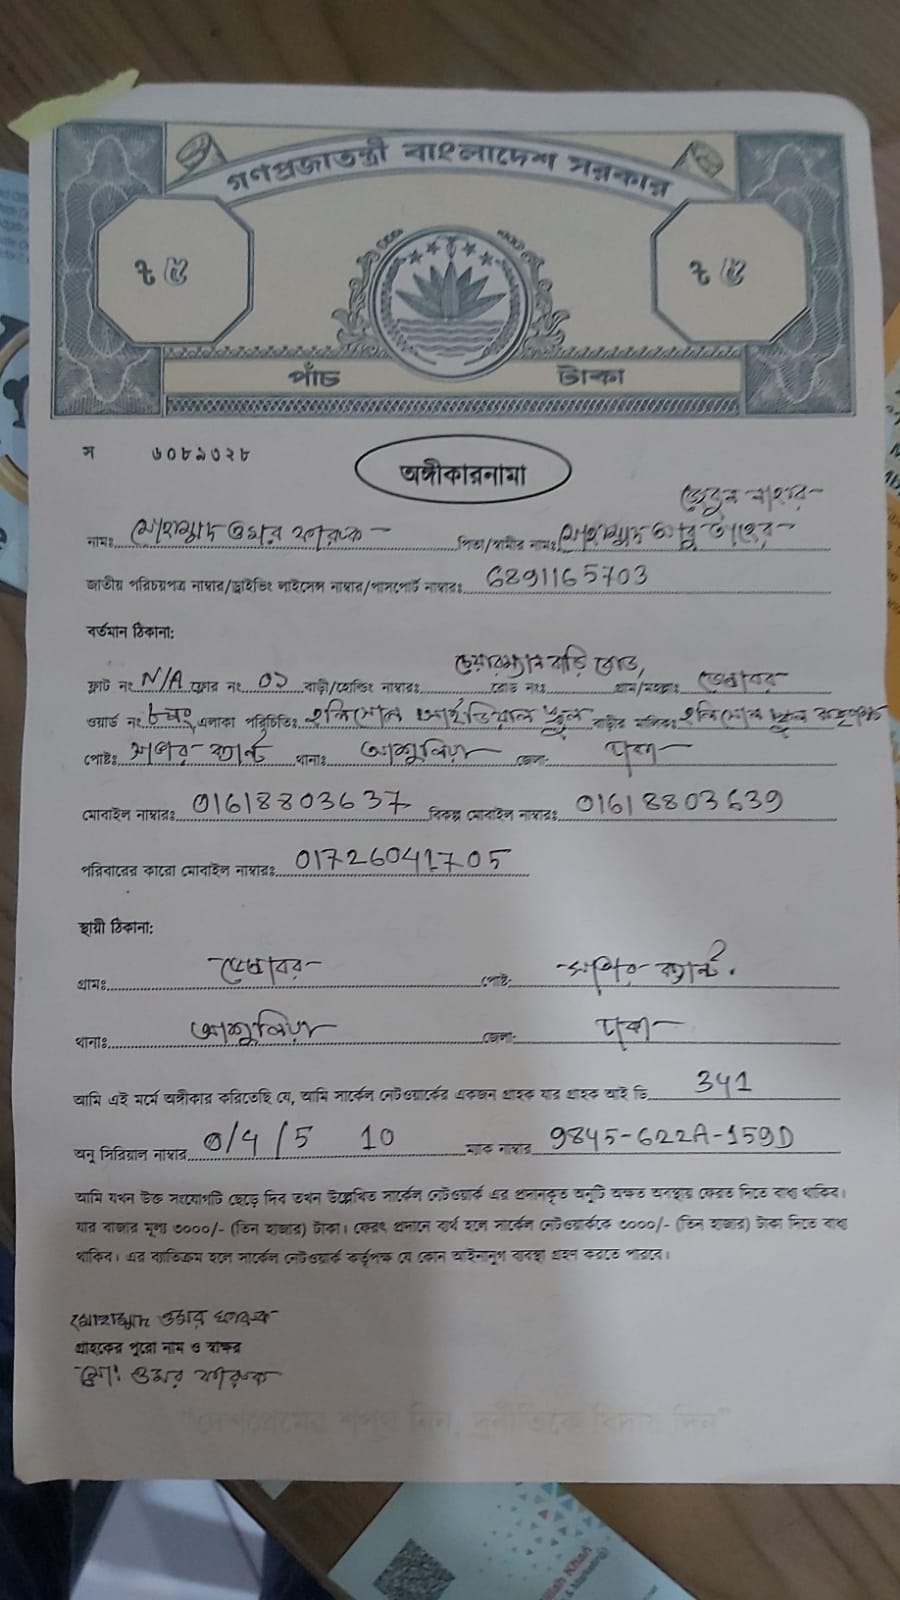 গণপ্রজাতন্ত্রী বাংলাদেশ সরকার
৳ ৫ ৳ ৫
পাঁচ টাকা
স ৬০৮৯৩২৮
অঙ্গীকারনামা
নামঃ মোহাম্মাদ ওমর ফারুক পিতা/স্বামীর নামঃ মোহাম্মাদ আবু তাহের
জাতীয় পরিচয়পত্র নাম্বার/ড্রাইভিং লাইসেন্স নাম্বার/পাসপোর্ট নাম্বারঃ 6891165703
বর্তমান ঠিকানা:
চেয়ারম্যান বাড়ি রোড,
ফ্লাট নং N/A ফ্লোর নং ০১ বাড়ী/হোল্ডিং নাম্বারঃ রোড নংঃ গ্রাম/মহল্লাঃ
ওয়ার্ড নং ৮নং এলাকা পরিচিতিঃ স্কুল বাড়ীর মালিকঃ স্কুল
পোষ্টঃ সাভার ক্যান্ট থানাঃ আশুলিয়া জেলা: ঢাকা
মোবাইল নাম্বারঃ 01618803637 বিকল্প মোবাইল নাম্বারঃ 01618803639
পরিবারের কারো মোবাইল নাম্বারঃ 01726041705
স্থায়ী ঠিকানা:
গ্রামঃ পোষ্ট: সাভার ক্যান্ট.
থানাঃ আশুলিয়া জেলা: ঢাকা
আমি এই মর্মে অঙ্গীকার করিতেছি যে, আমি সার্কেল নেটওয়ার্কের একজন গ্রাহক যার গ্রাহক আই ডি 341
অনু সিরিয়াল নাম্বার 0/4/5 10 ম্যাক নাম্বার 9845-622A-159D
আমি যখন উক্ত সংযোগটি ছেড়ে দিব তখন উল্লেখিত সার্কেল নেটওয়ার্ক এর প্রদানকৃত অনুটি অক্ষত অবস্থায় ফেরত দিতে বাধ্য থাকিব।
যার বাজার মূল্য ৩০০০/- (তিন হাজার) টাকা। ফেরৎ প্রদানে ব্যর্থ হলে সার্কেল নেটওয়ার্ককে ৩০০০/- (তিন হাজার) টাকা দিতে বাধ্য
থাকিব। এর ব্যতিক্রম হলে সার্কেল নেটওয়ার্ক কর্তৃপক্ষ যে কোন আইনানুগ ব্যবস্থা গ্রহণ করতে পারবে।
মোহাম্মাদ ওমর ফারুক
গ্রাহকের পুরো নাম ও স্বাক্ষর
মো: ওমর ফারুক
"দেশপ্রেমের শপথ নিন, দুর্নীতিকে বিদায় দিন"